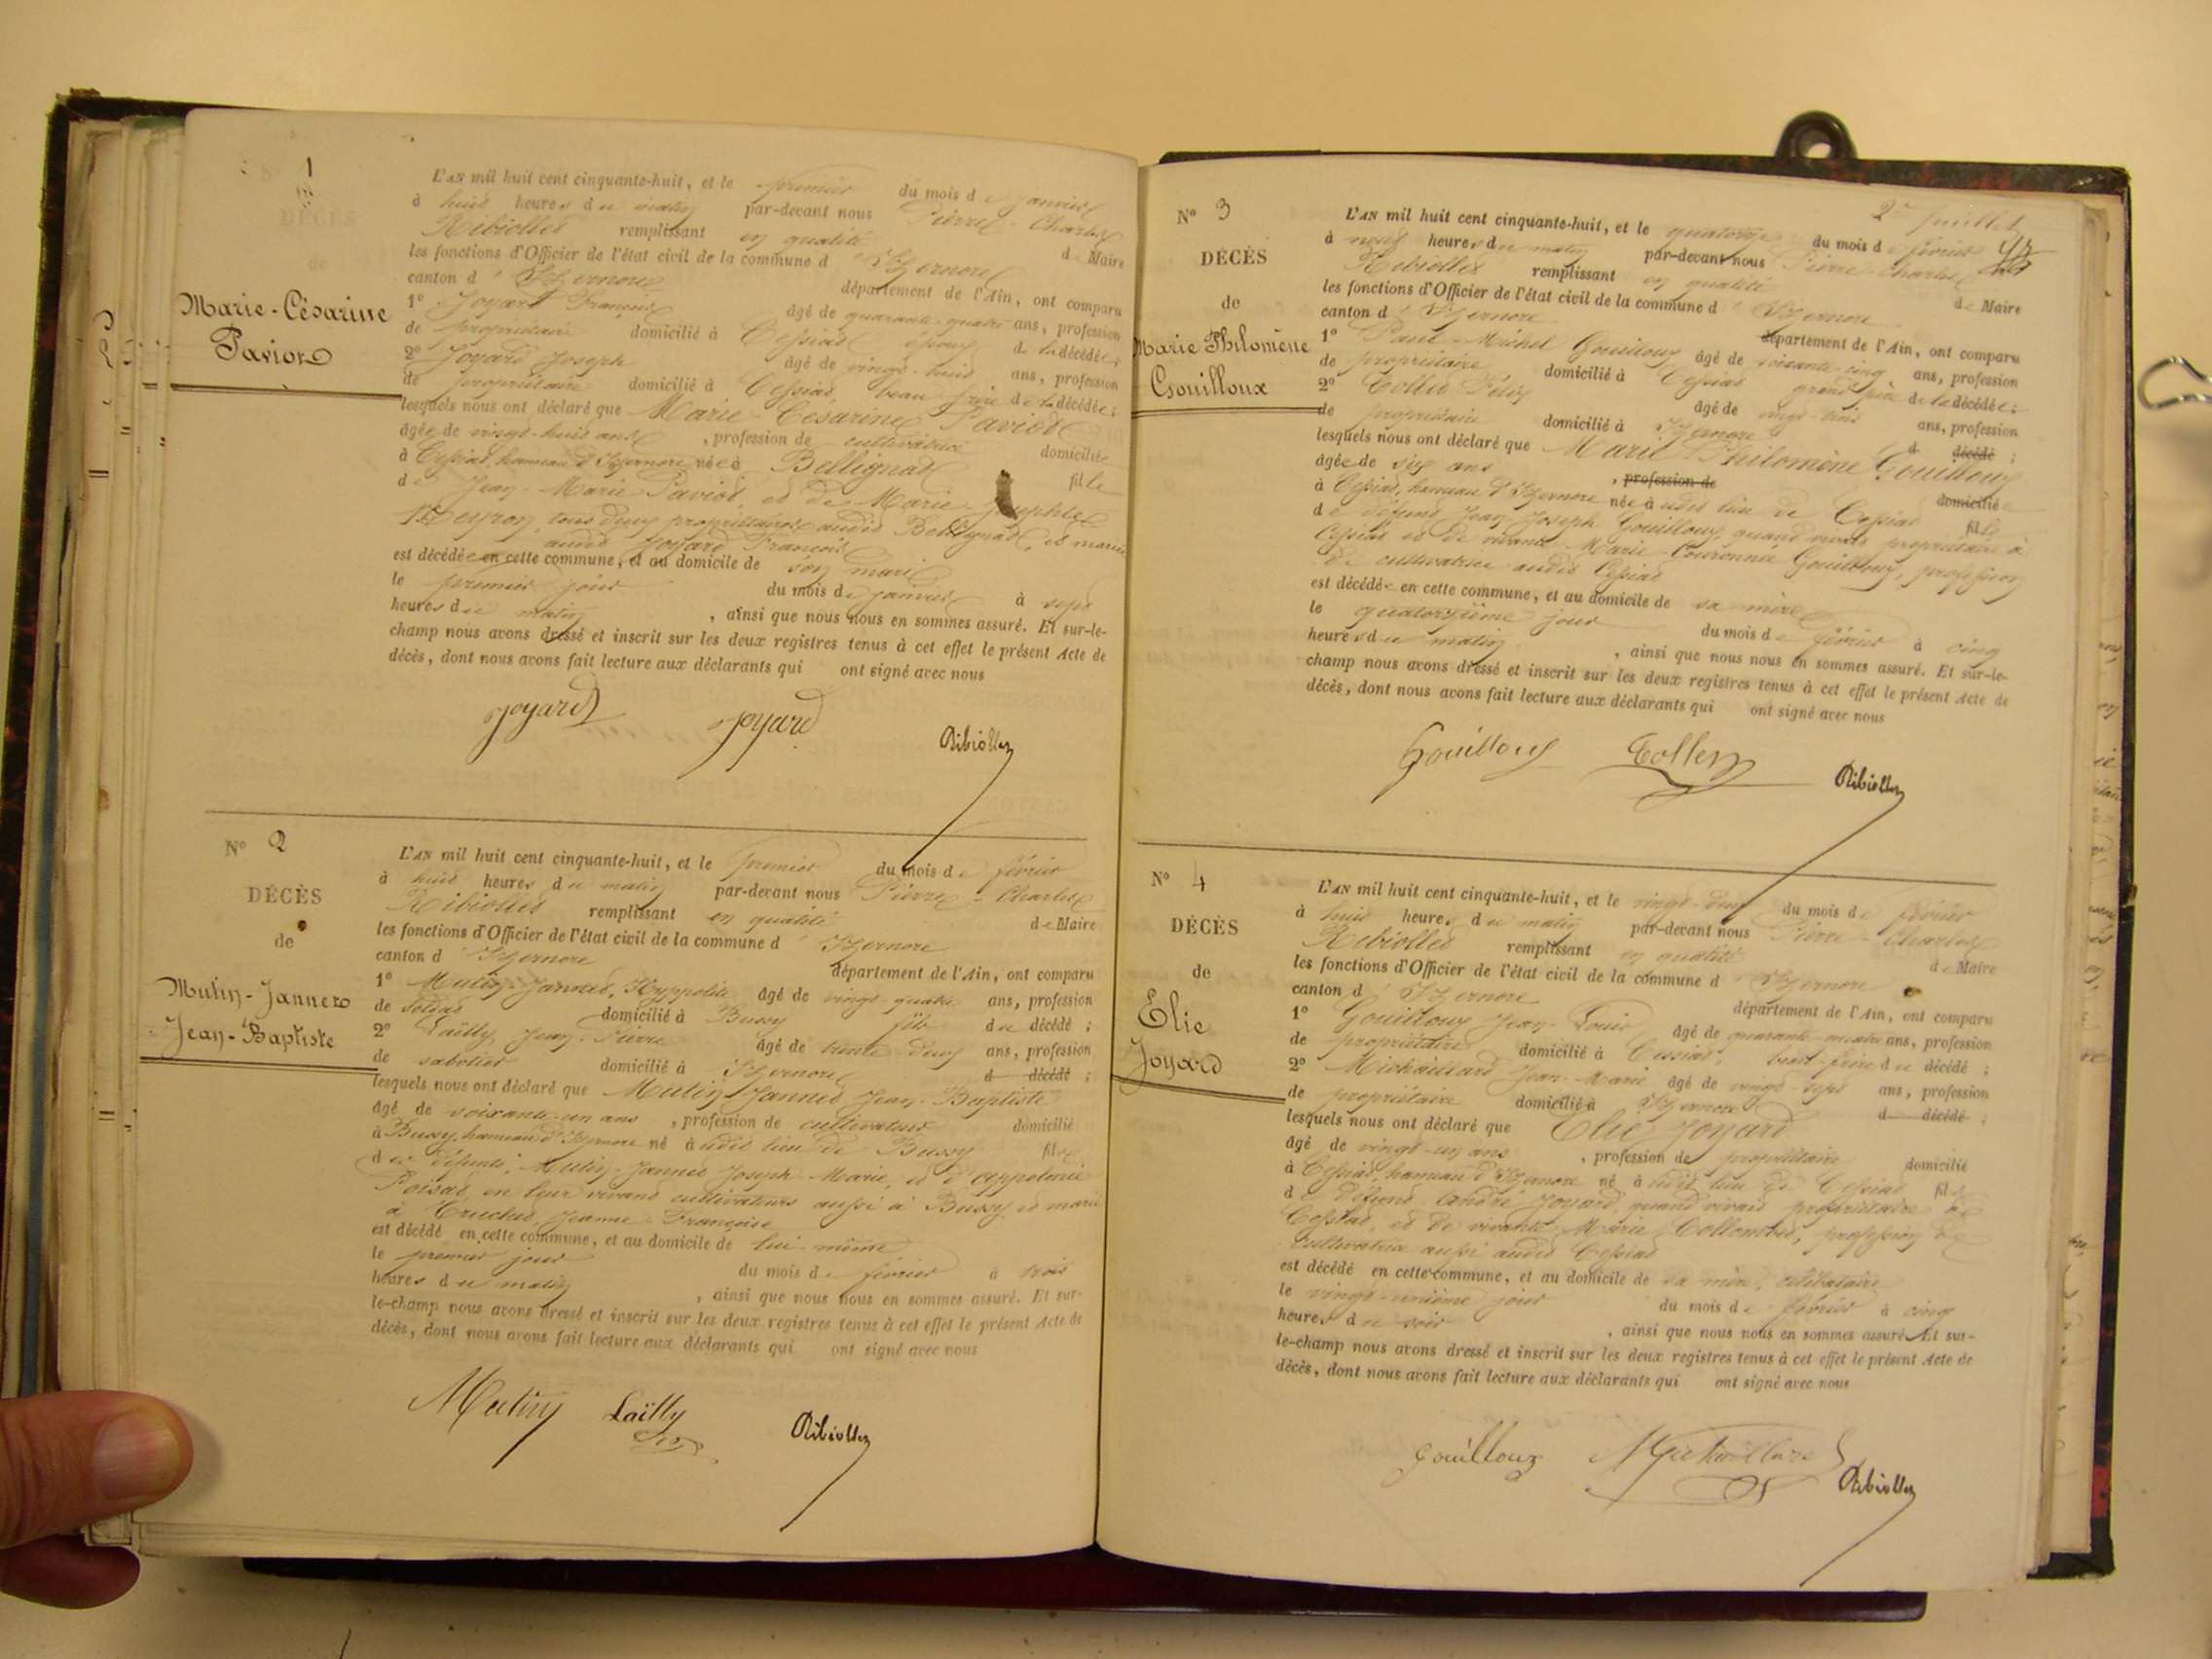 1
DÉCÈS
de
Marie-Césarine
Paviot
L'AN mil huit cent cinquante-huit, et le premier du mois de janvier
à huit heures du matin par-devant nous Pierre-Charles
Ribiollet remplissant en qualité de Maire
les fonctions d'Officier de l'état civil de la commune d'Izernore
canton d'Izernore département de l'Ain, ont comparu
1° Joyard François âgé de quarante-quatre ans, profession
de propriétaire domicilié à Cessiat époux de la décédée;
2° Joyard Joseph âgé de vingt-huit ans, profession
de propriétaire domicilié à Cessiat beau frère de la décédée;
lesquels nous ont déclaré que Marie-Césarine Paviot
âgée de vingt-huit ans, profession de cultivatrice domiciliée
à Cessiat, hameau d'Izernore née à Bellignat fille
de Jean-Marie Paviot et de Marie-Josephte
tous deux propriétaires audit Bellignat, et mariée
audit Joyard François
est décédée en cette commune, et au domicile de son mari
le premier jour du mois de janvier à sept
heures du matin, ainsi que nous nous en sommes assuré. Et sur-le-
champ nous avons dressé et inscrit sur les deux registres tenus à cet effet le présent Acte de
décès, dont nous avons fait lecture aux déclarants qui ont signé avec nous
Joyard Joyard Ribiollet
N° 2
DÉCÈS
de
Mutin-Jannet
Jean-Baptiste
L'AN mil huit cent cinquante-huit, et le premier du mois de février
à huit heures du matin par-devant nous Pierre-Charles
Ribiollet remplissant en qualité de Maire
les fonctions d'Officier de l'état civil de la commune d'Izernore
canton d'Izernore département de l'Ain, ont comparu
1° Mutin-Jannet, Hyppolite âgé de vingt-quatre ans, profession
de soldat domicilié à Bussy fils du décédé;
2° Lailly, Jean-Pierre âgé de trente deux ans, profession
de sabotier domicilié à Izernore d décédé;
lesquels nous ont déclaré que Mutin-Jannet Jean-Baptiste
âgé de soixante-un ans, profession de cultivateur domicilié
à Bussy, hameau d'Izernore né audit lieu de Bussy fils
des défunts, Mutin-Jannet Joseph-Marie, et d'Appolonie
Poisat, en leur vivant cultivateurs aussi à Bussy et marié
à Truchet Jeanne-Françoise
est décédé en cette commune, et au domicile de lui-même
le premier jour du mois de février à trois
heures du matin, ainsi que nous nous en sommes assuré. Et sur-
le-champ nous avons dressé et inscrit sur les deux registres tenus à cet effet le présent Acte de
décès, dont nous avons fait lecture aux déclarants qui ont signé avec nous
Mutin Lailly Ribiollet
2e juillet
N° 3
DÉCÈS
de
Marie Philomène
Gouilloux
L'AN mil huit cent cinquante-huit, et le quatorze du mois de février
à neuf heures du matin par-devant nous Pierre-Charles
Ribiollet remplissant en qualité de Maire
les fonctions d'Officier de l'état civil de la commune d'Izernore
canton d'Izernore département de l'Ain, ont comparu
1° Paul-Michel Gouilloux âgé de soixante-cinq ans, profession
de propriétaire domicilié à Cessiat grand père de la décédée;
2° Collet Félix âgé de vingt-trois ans, profession
de propriétaire domicilié à Izernore d décédé;
lesquels nous ont déclaré que Marie-Philomène Gouilloux
âgée de six ans, profession de domiciliée
à Cessiat, hameau d'Izernore née audit lieu de Cessiat fille
de défunt Jean Joseph Gouilloux, quand vivait propriétaire à
Cessiat et de vivante Marie-Couronnée Gouilloux, profession
de cultivatrice audit Cessiat
est décédée en cette commune, et au domicile de sa mère
le quatorzième jour du mois de février à cinq
heures du matin, ainsi que nous nous en sommes assuré. Et sur-le-
champ nous avons dressé et inscrit sur les deux registres tenus à cet effet le présent Acte de
décès, dont nous avons fait lecture aux déclarants qui ont signé avec nous
Gouilloux Collet Ribiollet
N° 4
DÉCÈS
de
Elie
Joyard
L'AN mil huit cent cinquante-huit, et le vingt-deux du mois de février
à huit heures du matin par-devant nous Pierre-Charles
Ribiollet remplissant en qualité de Maire
les fonctions d'Officier de l'état civil de la commune d'Izernore
canton d'Izernore département de l'Ain, ont comparu
1° Gouilloux Jean-Louis âgé de quarante-quatre ans, profession
de propriétaire domicilié à Cessiat, beau-frère du décédé;
2° Michaillard Jean-Marie âgé de vingt-sept ans, profession
de propriétaire domicilié à Izernore d décédé;
lesquels nous ont déclaré que Elie Joyard
âgé de vingt-un ans, profession de propriétaire domicilié
à Cessiat, hameau d'Izernore né audit lieu de Cessiat fils
de défunt André Joyard, quand vivait propriétaire à
Cessiat, et de vivante Marie Collombet, profession de
cultivatrice aussi audit Cessiat
est décédé en cette commune, et au domicile de sa mère, célibataire
le vingt-unième jour du mois de février à cinq
heures du soir, ainsi que nous nous en sommes assuré. Et sur-
le-champ nous avons dressé et inscrit sur les deux registres tenus à cet effet le présent Acte de
décès, dont nous avons fait lecture aux déclarants qui ont signé avec nous
Gouilloux Michaillard Ribiollet